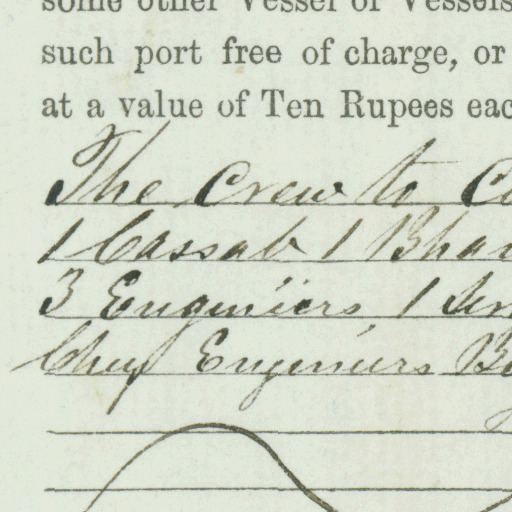 some other Vessel or Vessels
such port free of charge, or
at a value of Ten Rupees eac
The Crew to Co
1 Cassab 1 Bhan
3 Engineers 1 Ser
Chief Engineers Bo